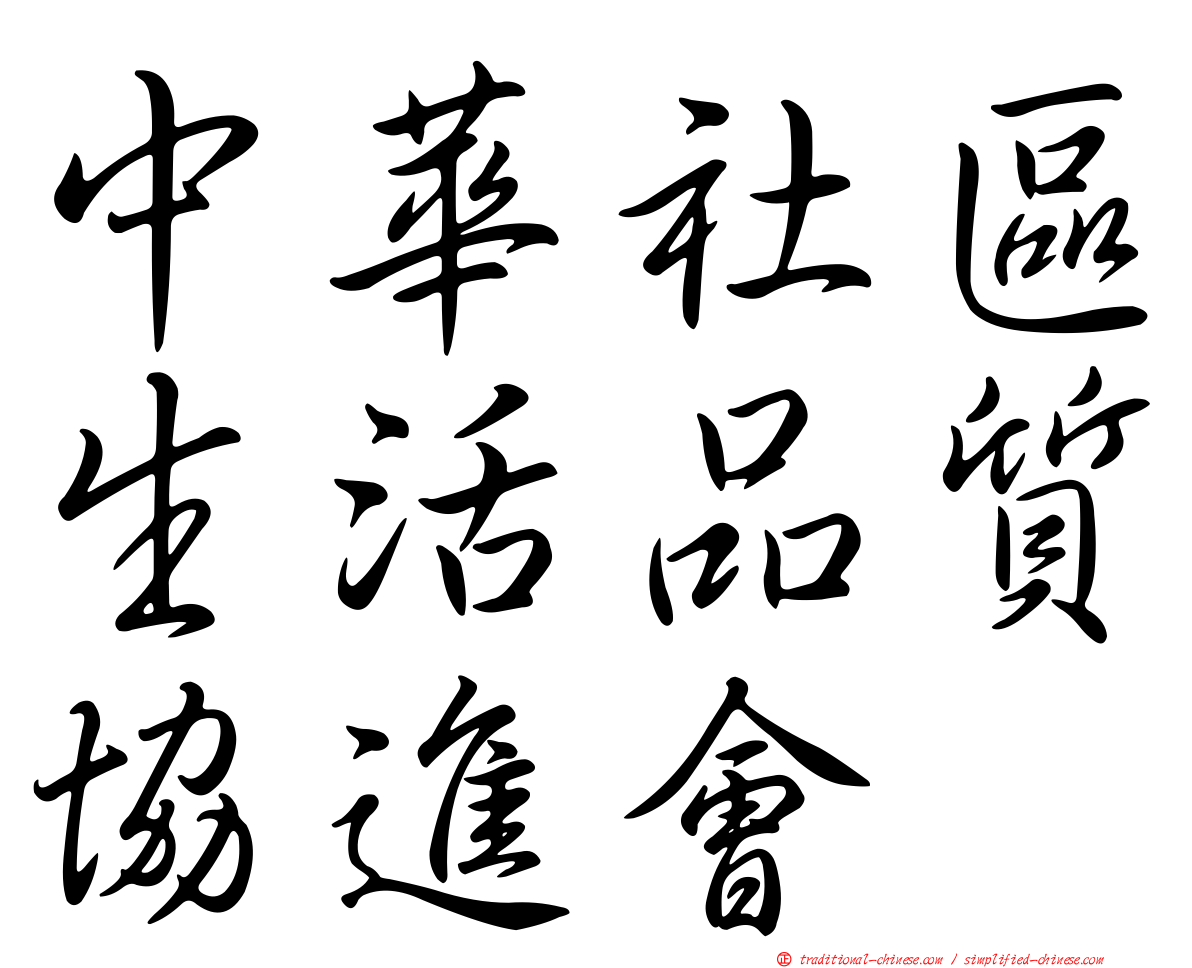 中華社區
生活品質
協進會
正 traditional-chinese.com / simplified-chinese.com